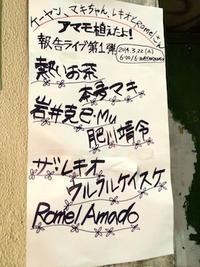 ケーヤン、マキちゃん、レキオとRomelさん
アマモ植えたよ!
報告ライブ第1弾
2014.3.22(土)
熱いお茶
本多マキ
岩井克己・Mu
肥川靖令
ザ・レキオ
ウルラルケイスケ
Romel Amado